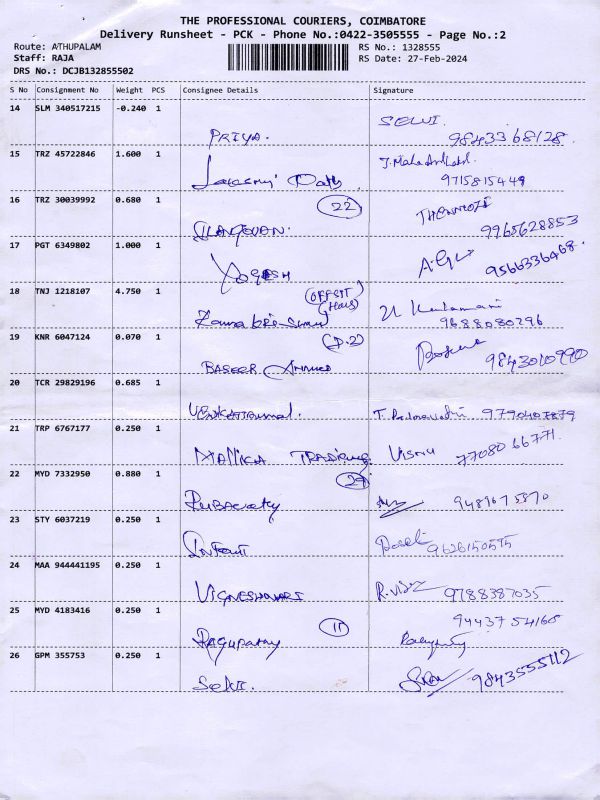 THE PROFESSIONAL COURIERS, COIMBATORE
Delivery Runsheet - PCK - Phone No.:0422-3505555 - Page No.:2
Route: ATHUPALAM RS No.: 1328555
Staff: RAJA RS Date: 27-Feb-2024
DRS No.: DCJB132855502
S No Consignment No Weight PCS Consignee Details Signature
14 SLM 340517215 -0.240 1
PRIYA. SELVI. 9843368128
15 TRZ 45722846 1.600 1
9715815449
16 TRZ 30039992 0.680 1 22
9965628853
17 PGT 6349802 1.000 1
YOGESH 9566336468.
18 TNJ 1218107 4.750 1
9688080296
19 KNR 6047124 0.070 1
BASEER AHMED 9843010990
20 TCR 29829196 0.685 1
9790407879
21 TRP 6767177 0.250 1
MALLIKA TRADING VISNU 77080 66771.
22 MYD 7332950 0.880 1 29
9489675870
23 STY 6037219 0.250 1
9626150595
24 MAA 944441195 0.250 1
VIGNESHWARI 9788387035
25 MYD 4183416 0.250 1 11
RAGUPATHY 94437 54165
26 GPM 355753 0.250 1
SELVI. 9843555112